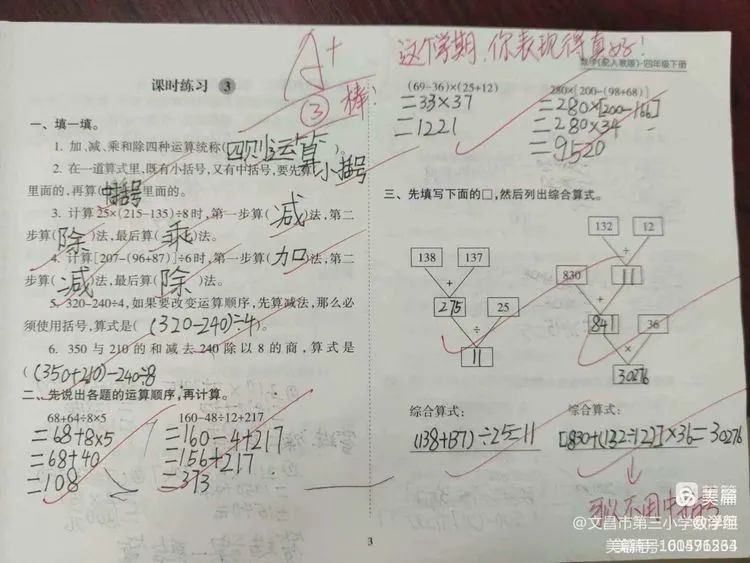 A+
③ 棒!
课时练习 3
一、填一填。
1. 加、减、乘和除四种运算统称(四则运算)。
2. 在一道算式里,既有小括号,又有中括号,要先算(小括号
里面的,再算(中括号)里面的。
3. 计算25×(215-135)÷8时,第一步算(减)法,第二
步算(除)法,最后算(乘)法。
4. 计算[207-(96+87)]÷6时,第一步算(加)法,第二
步算(减)法,最后算(除)法。
5. 320-240÷4,如果要改变运算顺序,先算减法,那么必
须使用括号,算式是((320-240)÷4)。
6. 350与210的和减去240除以8的商,算式是
((350+210)-240÷8
二、先说出各题的运算顺序,再计算。
68+64÷8×5
=68+8×5
=68+40
=108
160-48÷12+217
=160-4+217
=156+217
=373
3
这个学期,你表现得真好!
数学(配人教版)·四年级下册
(69-36)×(25+12)
=33×37
=1221
280×[200-(98+68)]
=280×[200-166]
=280×34
=9520
三、先填写下面的□,然后列出综合算式。
138 137
+
275 25
÷
11
132 12
÷
830 11
+
841 36
×
30276
综合算式:
(138+137)÷25=11
综合算式:
[830+(132÷12)]×36=30276
可以不用中括号
美篇
@文昌市第三小学数学组